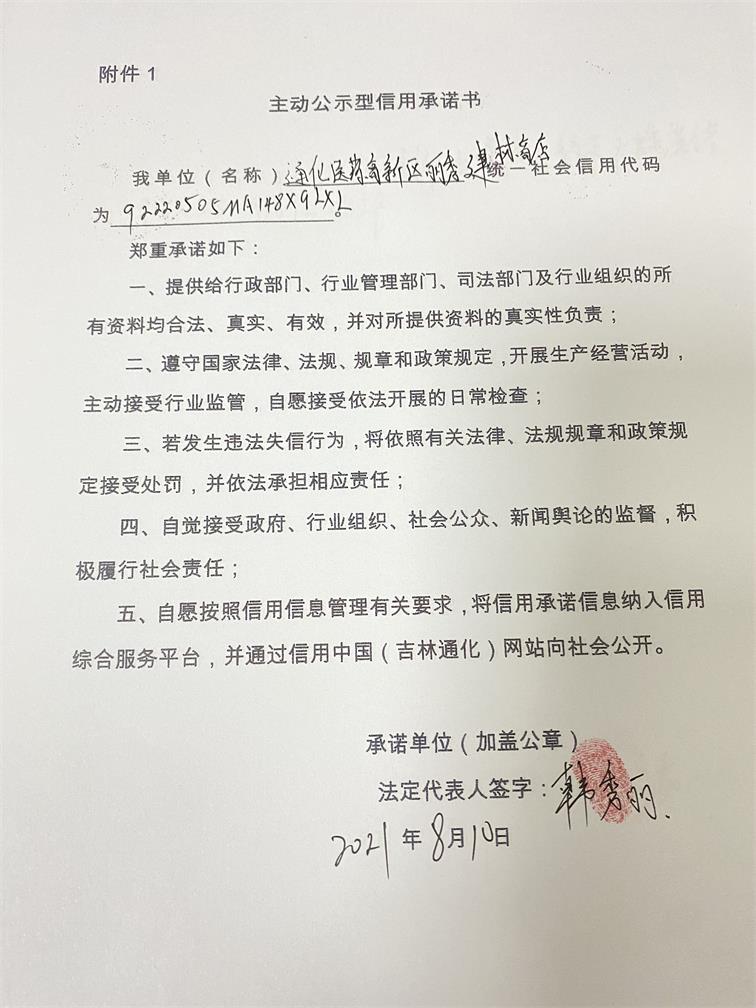 附件 1
主动公示型信用承诺书
我单位（名称）通化医药高新区丽秀建材商店统一社会信用代码
为 92220505MA148X9LXL。
郑重承诺如下：
一、提供给行政部门、行业管理部门、司法部门及行业组织的所
有资料均合法、真实、有效，并对所提供资料的真实性负责；
二、遵守国家法律、法规、规章和政策规定，开展生产经营活动，
主动接受行业监管，自愿接受依法开展的日常检查；
三、若发生违法失信行为，将依照有关法律、法规规章和政策规
定接受处罚，并依法承担相应责任；
四、自觉接受政府、行业组织、社会公众、新闻舆论的监督，积
极履行社会责任；
五、自愿按照信用信息管理有关要求，将信用承诺信息纳入信用
综合服务平台，并通过信用中国（吉林通化）网站向社会公开。
承诺单位（加盖公章）
法定代表人签字：韩秀丽
2021年8月10日